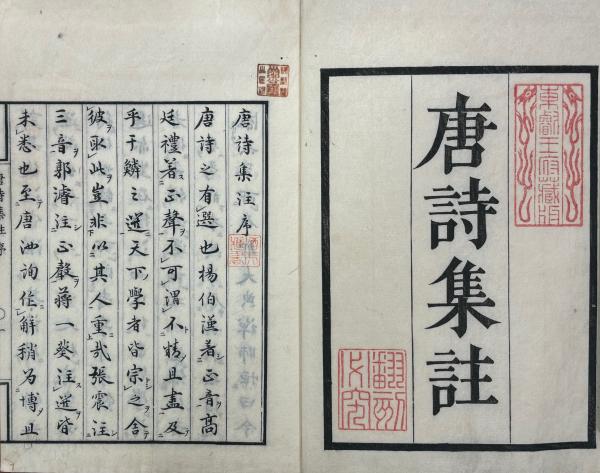 唐詩集註
東叡王府藏版
翻刻必究
唐詩集注序
唐詩之有選也楊伯謙著正音高
廷禮著正聲不可謂不精且盡及
乎于鱗之選天下學者皆宗之舍
彼取此豈非以其人重哉張震注
三音郭濬注正聲蔣一葵注選皆
未悉也至唐汝詢作解稍為博且